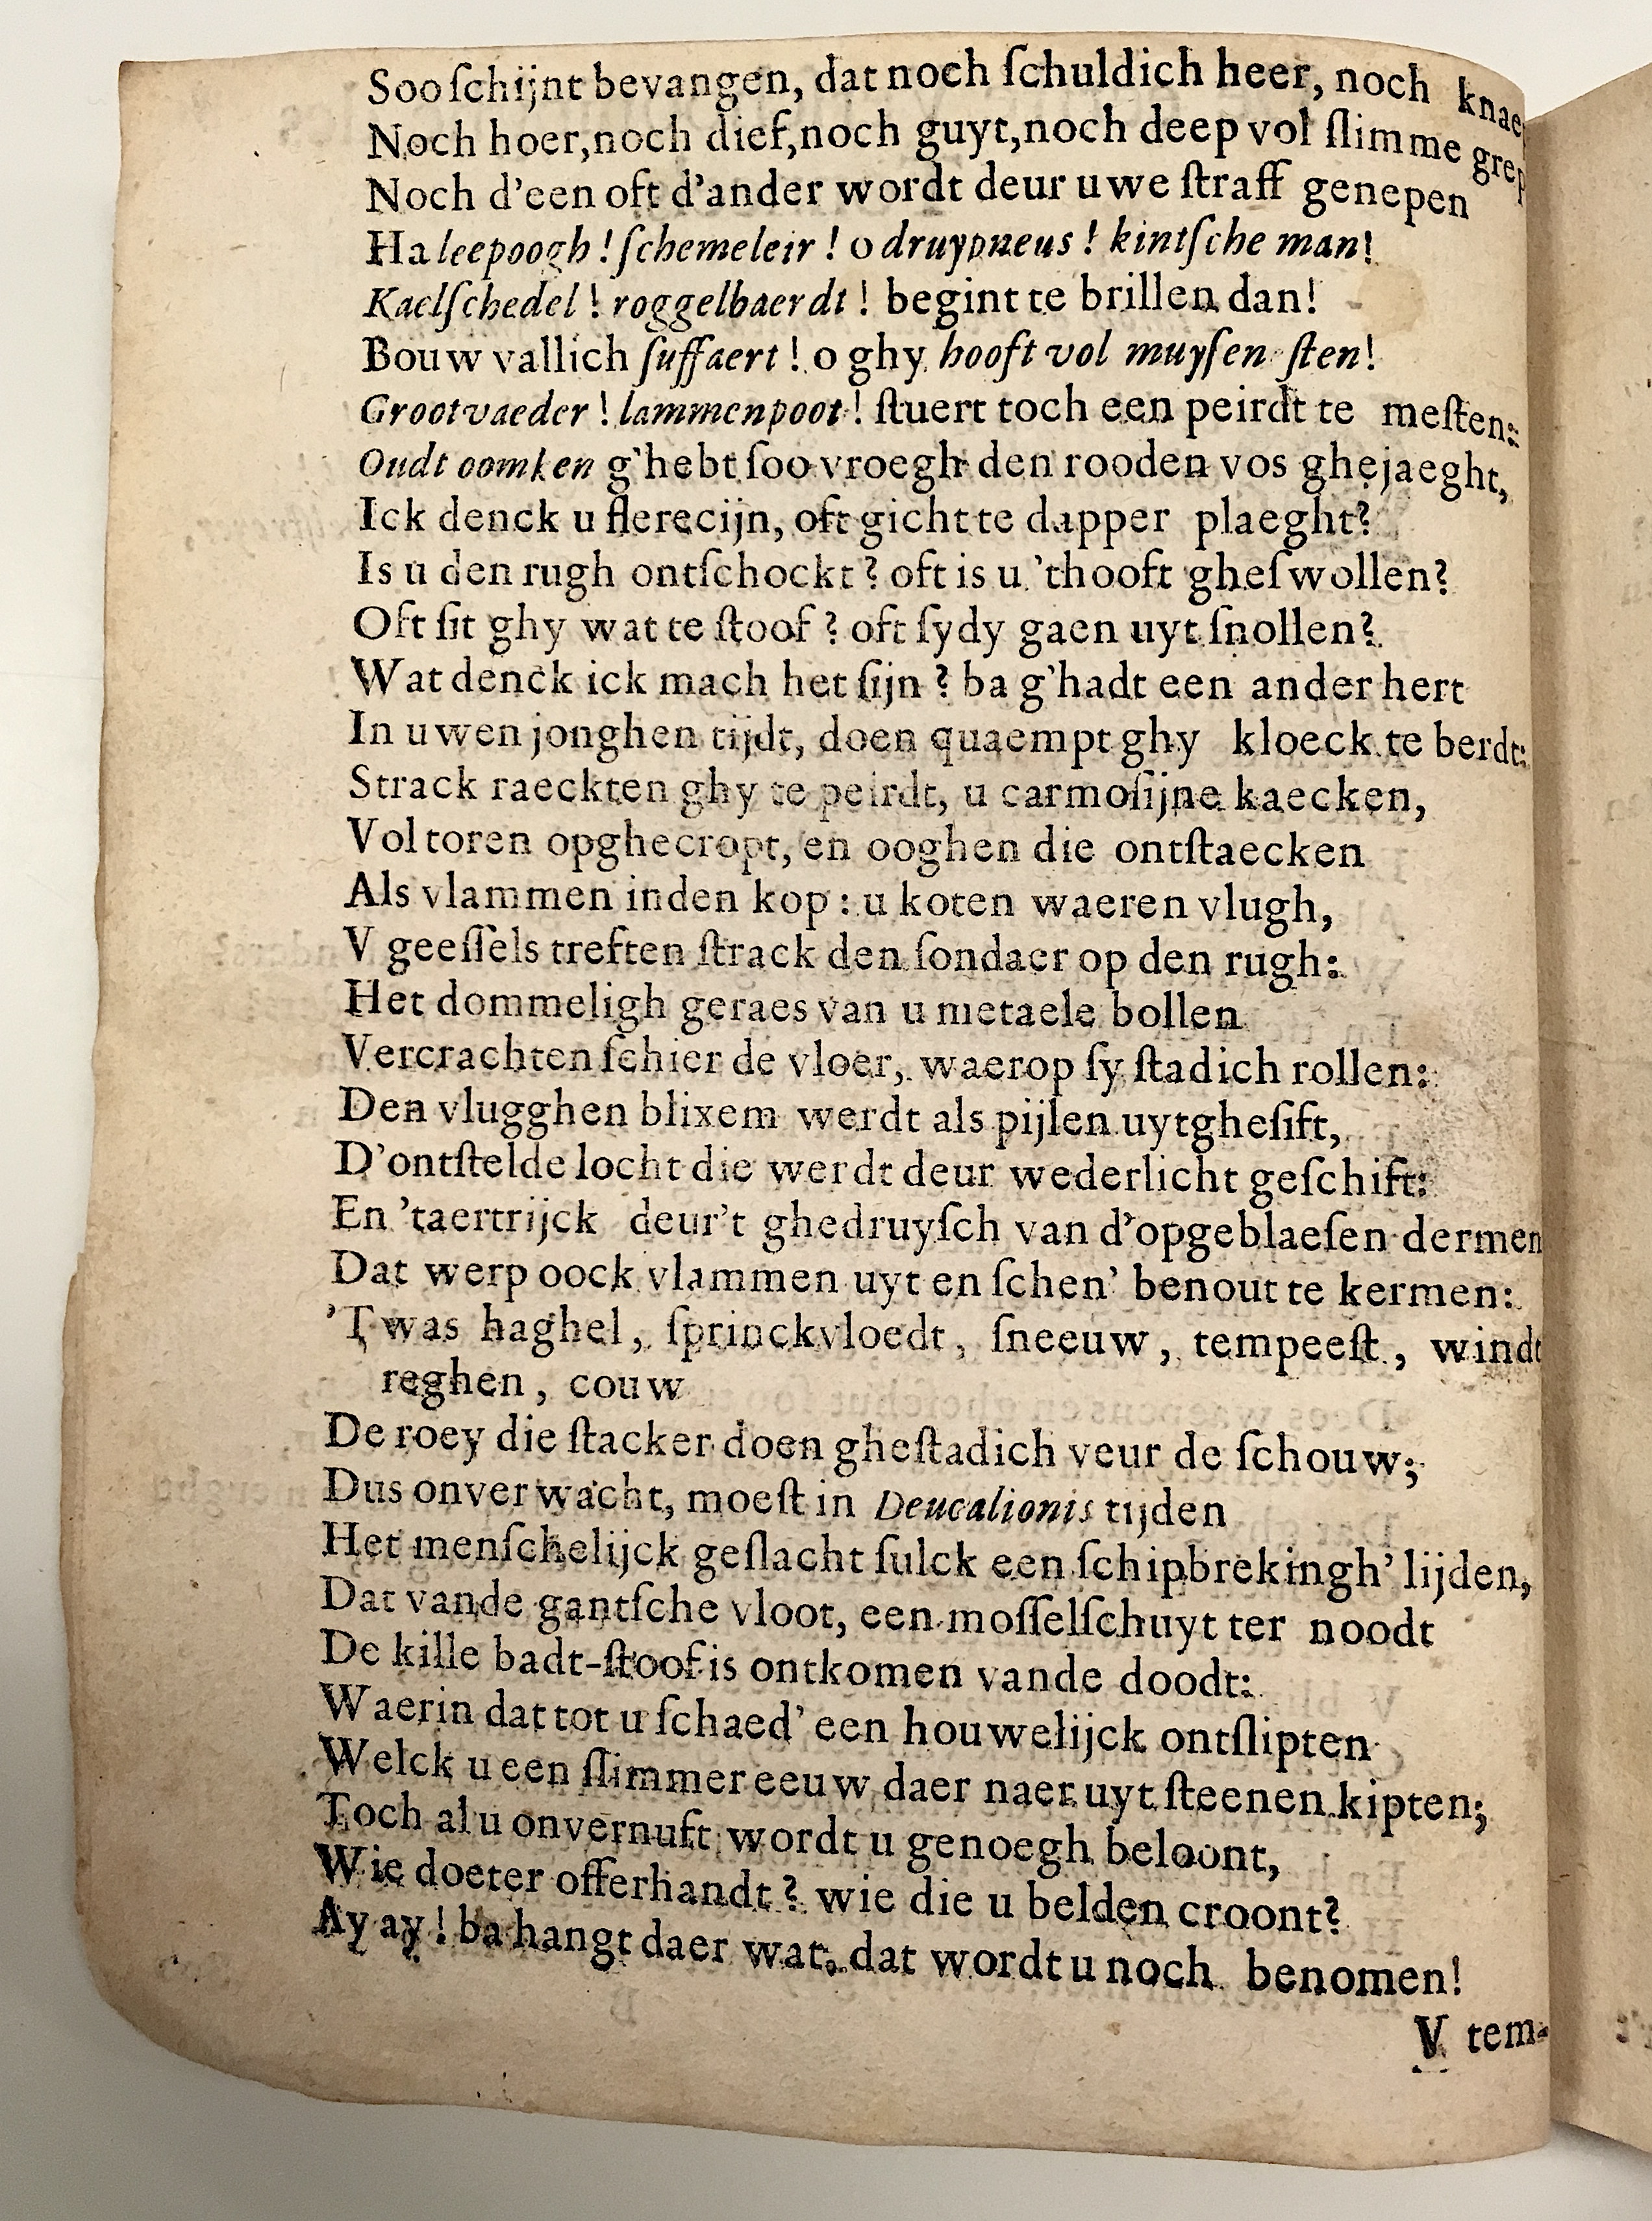 Soo ſchijnt bevangen, dat noch ſchuldich heer, noch knae
Noch hoer, noch dief, noch guyt, noch deep vol ſlimme grep
Noch d'een oft d'ander wordt deur uwe ſtraff genepen
Ha leepoogh! ſchemeleir! o druypneus! kintſche man!
Kaelſchedel! roggelbaerdt! begint te brillen dan!
Bouwvallich ſuffaert! o ghy hooft vol muyſen ſten!
Grootvaeder! lammenpoot! ſtuert toch een peirdt te meſten:
Oudt oomken g'hebt ſoo vroegh den rooden vos ghejaeght,
Ick denck u flerecijn, oft gicht te dapper plaeght?
Is u den rugh ontſchockt? oft is u 'thooft gheſwollen?
Oft ſit ghy wat te ſtoof? oft ſydy gaen uyt ſnollen?
Wat denck ick mach het ſijn? ba g'hadt een ander hert
In uwen jonghen tijdt, doen quaempt ghy kloeck te berdt:
Strack raeckten ghy te peirdt, u carmoſijne kaecken,
Vol toren opghecropt, en ooghen die ontſtaecken
Als vlammen inden kop: u koten waeren vlugh,
V geeſſels treften ſtrack den ſondaer op den rugh:
Het dommeligh geraes van u metaele bollen
Vercrachten ſchier de vloer, waerop ſy ſtadich rollen:
Den vlugghen blixem werdt als pijlen uytgheſift,
D'ontſtelde locht die werdt deur wederlicht geſchift:
En 'taertrijck deur't ghedruyſch van d'opgeblaeſen dermen
Dat werp oock vlammen uyt en ſchen' benout te kermen:
'Twas haghel, ſprinckvloedt, ſneeuw, tempeeſt, windt
reghen, couw
De roey die ſtacker doen gheſtadich veur de ſchouw;
Dus onverwacht, moeſt in Deucalionis tijden
Het menſchelijck geſlacht ſulck een ſchipbrekingh' lijden,
Dat vande gantſche vloot, een moſſelſchuyt ter noodt
De kille badt-ſtoof is ontkomen vande doodt:
Waerin dat tot u ſchaed' een houwelijck ontſlipten
Welck u een ſlimmer eeuw daer naer uyt ſteenen kipten;
Toch al u onvernuft wordt u genoegh beloont,
Wie doeter offerhandt? wie die u belden croont?
Ay ay! ba hangt daer wat, dat wordt u noch benomen!
V tem-